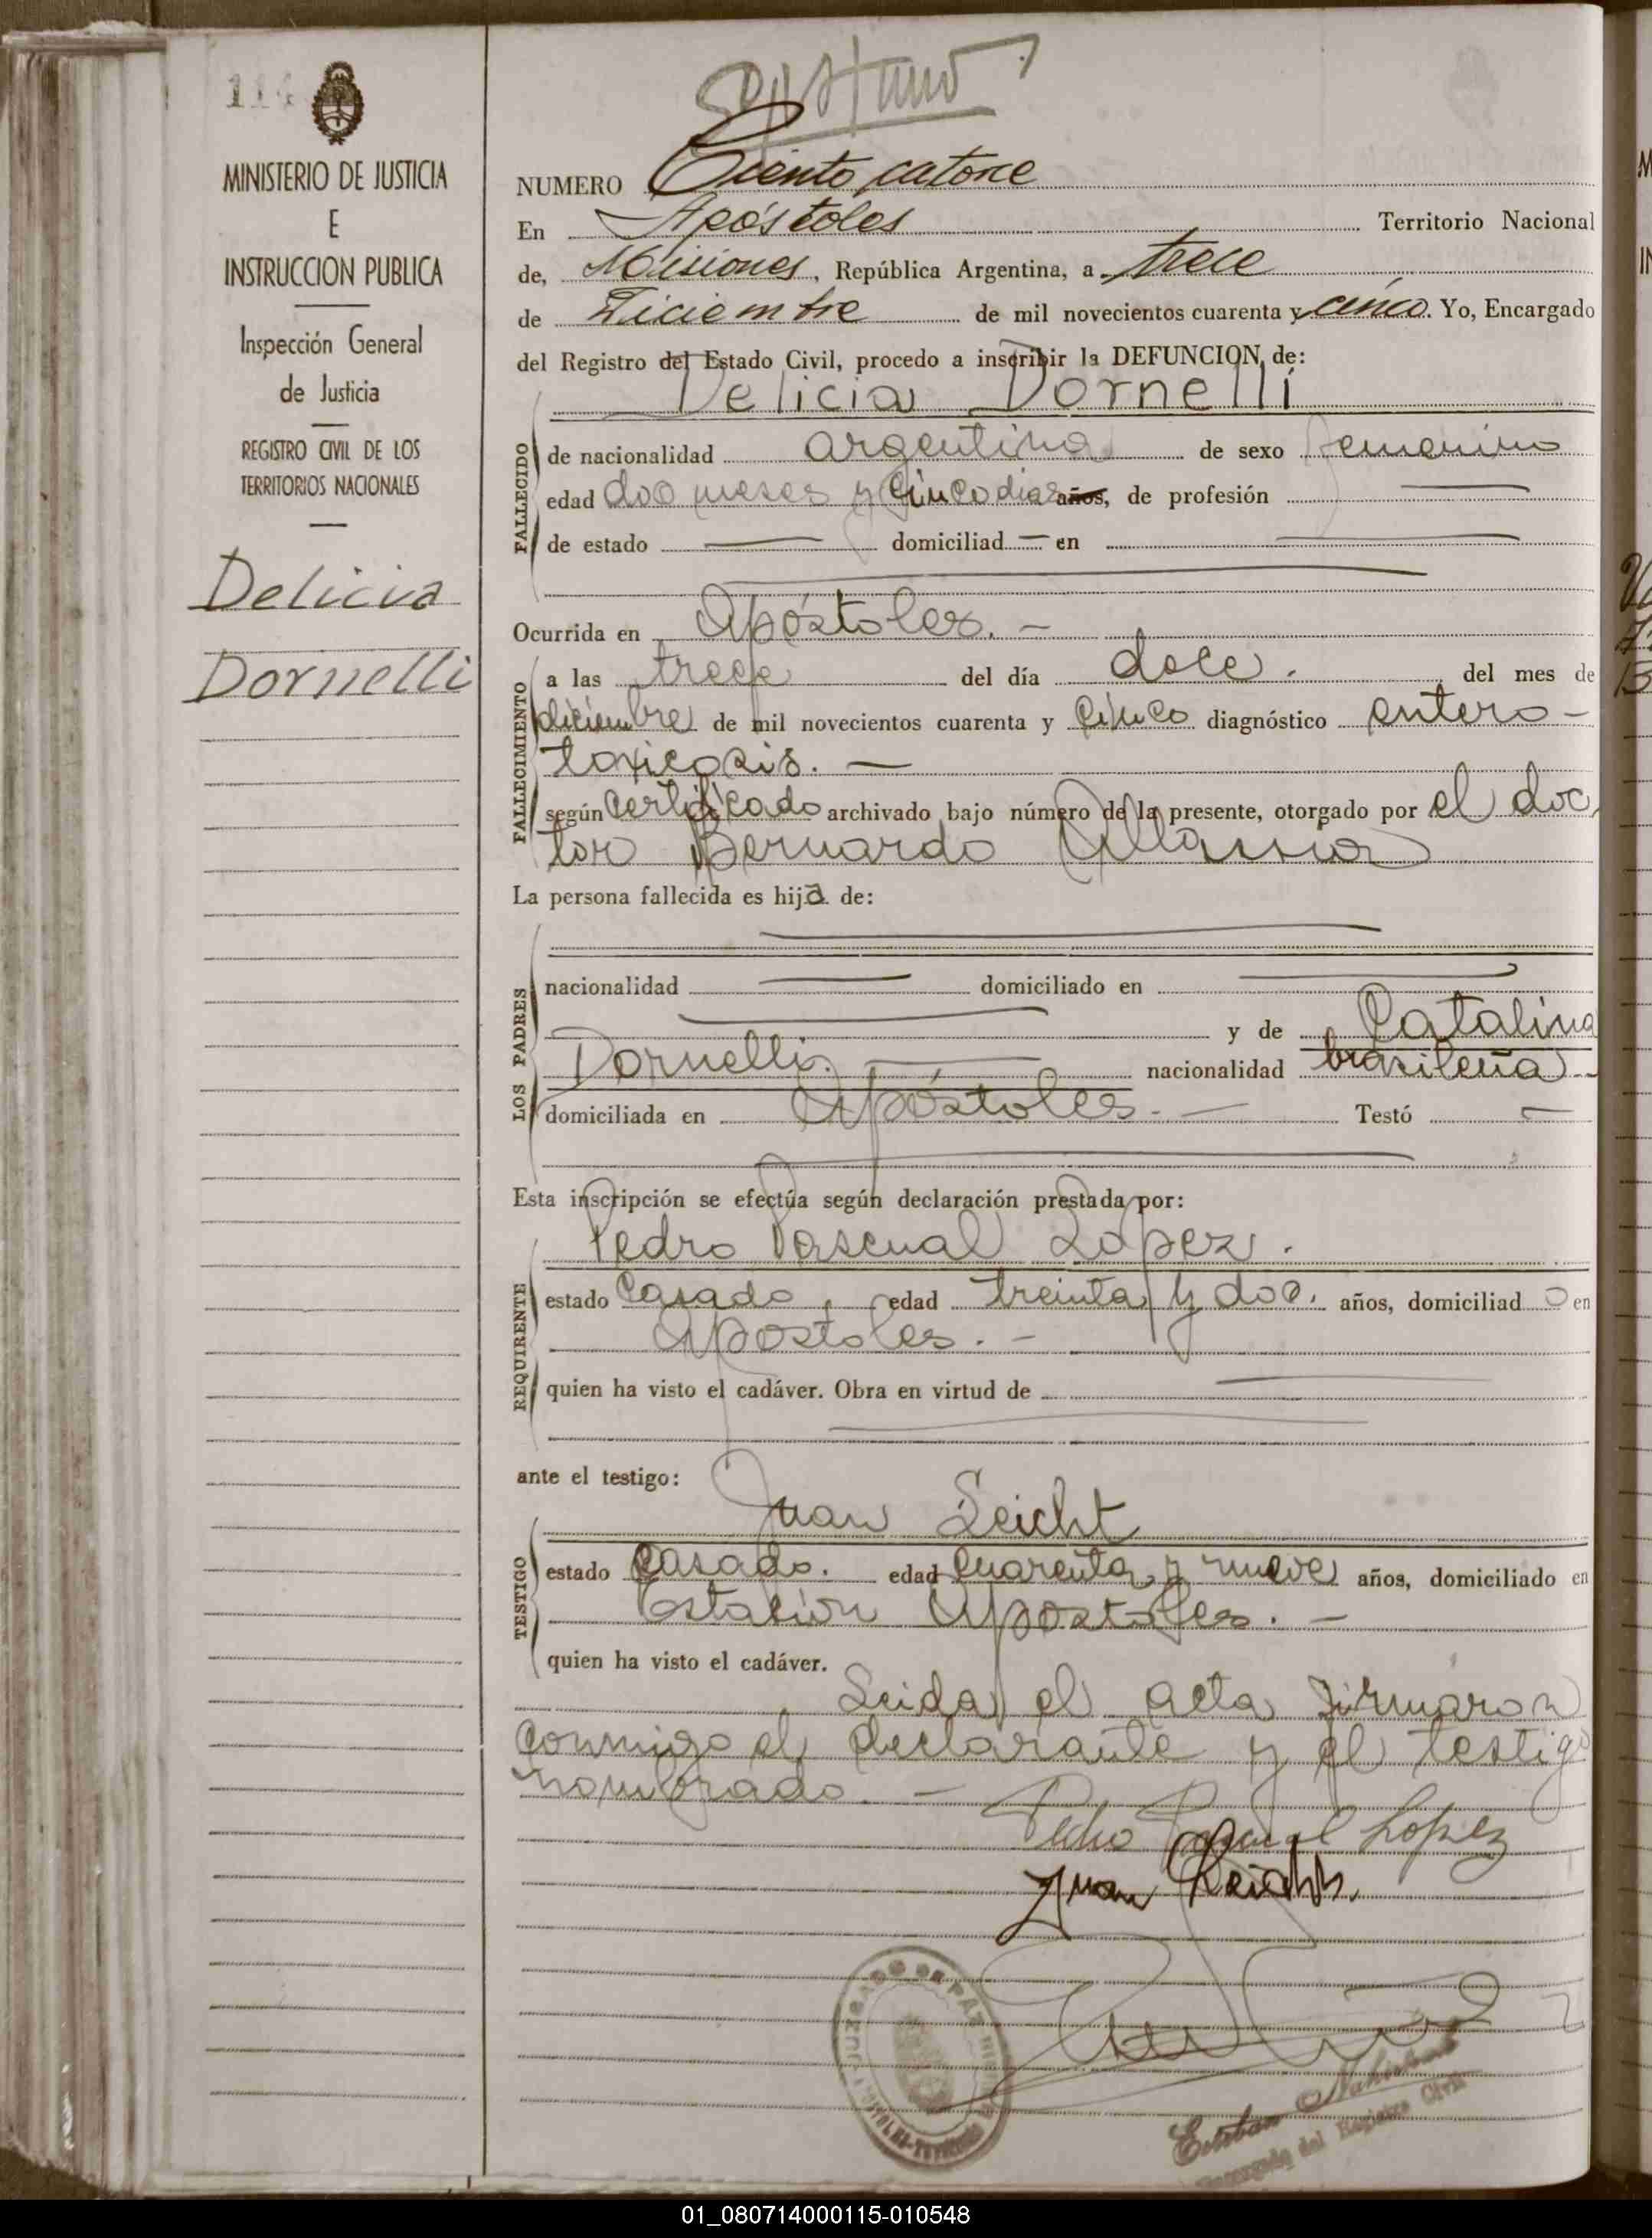 114
MINISTERIO DE JUSTICIA
E
INSTRUCCION PUBLICA
Inspección General
de Justicia
REGISTRO CIVIL DE LOS
TERRITORIOS NACIONALES
Delicia
Dornelli
NUMERO Ciento catorce
En Apóstoles Territorio Nacional
de, Misiones, República Argentina, a trece
de Diciembre de mil novecientos cuarenta y cinco. Yo, Encargado
del Registro del Estado Civil, procedo a inscribir la DEFUNCION, de:
Delicia Dornelli
FALLECIDO
de nacionalidad argentina de sexo femenino
edad dos meses y cinco dias años, de profesión —
de estado — domiciliad — en —
Ocurrida en Apóstoles. —
FALLECIMIENTO
a las trece del día doce. del mes de
diciembre de mil novecientos cuarenta y cinco diagnóstico entero-
toxicosis. —
según certificado archivado bajo número de la presente, otorgado por el doc
tor Bernardo
La persona fallecida es hija de:
LOS PADRES
nacionalidad — domiciliado en —
— y de Catalina
Dornelli. — nacionalidad brasileña. -
domiciliada en Apóstoles. — Testó —
Esta inscripción se efectúa según declaración prestada por:
Pedro Pascual Lopez.
REQUIRENTE
estado casado, edad treinta y dos. años, domiciliad o en
Apostoles. —
quien ha visto el cadáver. Obra en virtud de —
ante el testigo:
Juan Leicht
TESTIGO
estado casado. edad cuarenta y nueve años, domiciliado en
Estación Apostoles. —
quien ha visto el cadáver.
Leida el acta firmaron
conmigo el declarante y el testigo
nombrado. —
Pedro Pascual Lopez
Juan Leicht.
JUZGADO DE PAZ
Esteban
Encargado del Registro Civil
01_080714000115-010548